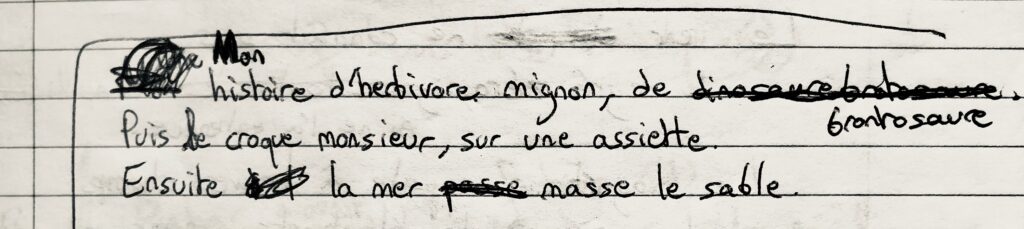 Mon
histoire d'herbivore mignon, de dinosaure brontosaure.
brontosaure
Puis le croque monsieur, sur une assiette.
Ensuite la mer passe masse le sable.